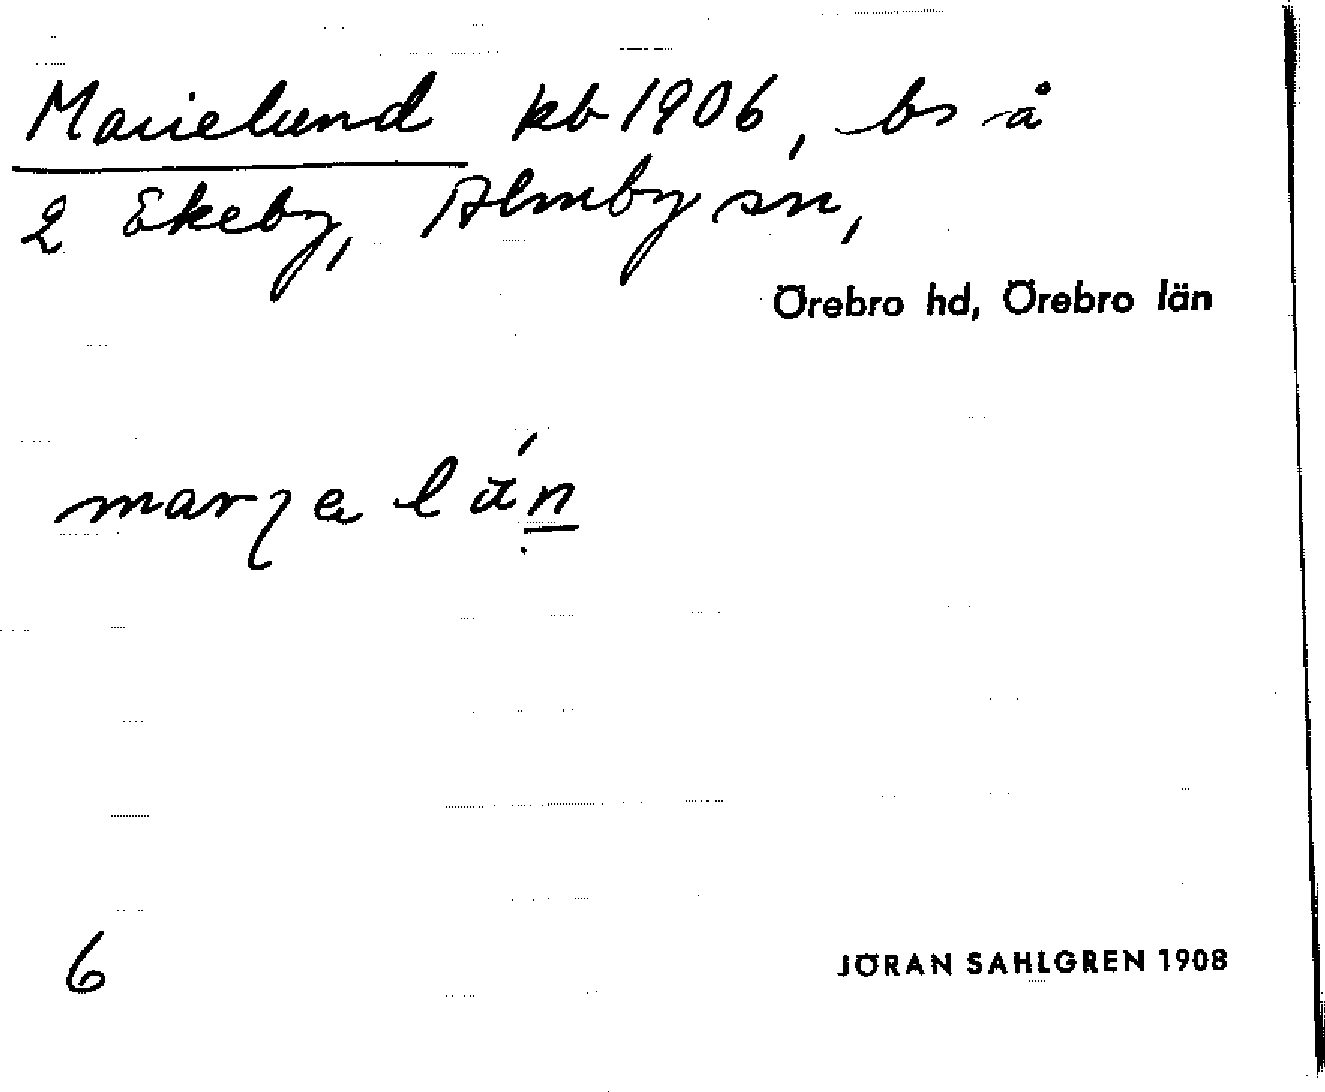 Marielund kb 1906, bs å
2 Ekeby, Almby sn,
Örebro hd, Örebro län
6
JÖRAN SAHLGREN 1908